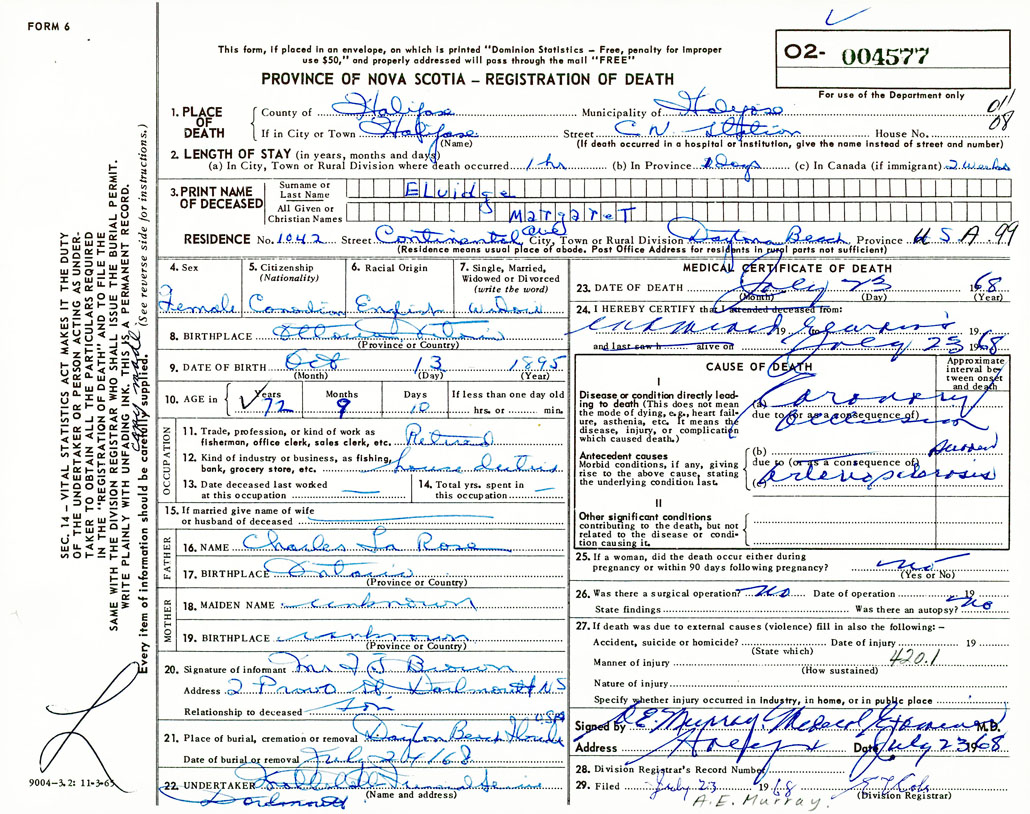 FORM 6
This form, if placed in an envelope, on which is printed "Dominion Statistics – Free, penalty for improper
use $50," and properly addressed will pass through the mail "FREE"
PROVINCE OF NOVA SCOTIA – REGISTRATION OF DEATH
O2- 004577
For use of the Department only
011
08
1. PLACE OF DEATH
County of Halifax Municipality of Halifax
If in City or Town Halifax Street C.N. Station House No.
(Name) (If death occurred in a hospital or institution, give the name instead of street and number)
2. LENGTH OF STAY (in years, months and days)
(a) In City, Town or Rural Division where death occurred 1 hr (b) In Province Days (c) In Canada (if immigrant) 2 Weeks
3. PRINT NAME OF DECEASED
Surname or Last Name ELvidge
All Given or Christian Names MargareT
RESIDENCE No. 1042 Street Continental Ave City, Town or Rural Division Daytona Beach Province U S A 99
(Residence means usual place of abode. Post Office Address for residents in rural parts not sufficient)
4. Sex Female
5. Citizenship (Nationality) Canadian
6. Racial Origin English
7. Single, Married, Widowed or Divorced (write the word) Widow
8. BIRTHPLACE Ontario
(Province or Country)
9. DATE OF BIRTH Oct 13 1895
(Month) (Day) (Year)
10. AGE in Years 72 Months 9 Days 10 If less than one day old hrs. or min.
OCCUPATION
11. Trade, profession, or kind of work as fisherman, office clerk, sales clerk, etc. Retired
12. Kind of industry or business, as fishing, bank, grocery store, etc. house duties
13. Date deceased last worked at this occupation —
14. Total yrs. spent in this occupation —
15. If married give name of wife or husband of deceased
FATHER
16. NAME Charles La Rose
17. BIRTHPLACE Ontario
(Province or Country)
MOTHER
18. MAIDEN NAME unknown
19. BIRTHPLACE unknown
(Province or Country)
20. Signature of informant Brown
Address 2 St Dartmouth N S
Relationship to deceased son
21. Place of burial, cremation or removal Dayton Beach Florida USA
Date of burial or removal July 24/68
22. UNDERTAKER Service
(Name and address)
Dartmouth
MEDICAL CERTIFICATE OF DEATH
23. DATE OF DEATH July 23 1968
(Month) (Day) (Year)
24. I HEREBY CERTIFY that I attended deceased from:
19 to 19
and last saw h alive on July 23 1968
CAUSE OF DEATH
Approximate interval between onset and death
I
Disease or condition directly leading to death (This does not mean the mode of dying, e.g., heart failure, asthenia, etc. It means the disease, injury, or complication which caused death.)
(a) Coronary
due to (or as a consequence of)
Occlusion
Antecedent causes
Morbid conditions, if any, giving rise to the above cause, stating the underlying condition last.
(b) Sudden
due to (or as a consequence of)
(c) Arteriosclerosis
II
Other significant conditions contributing to the death, but not related to the disease or condition causing it.
25. If a woman, did the death occur either during pregnancy or within 90 days following pregnancy? no
(Yes or No)
26. Was there a surgical operation? No Date of operation 19
State findings Was there an autopsy? No
27. If death was due to external causes (violence) fill in also the following: –
Accident, suicide or homicide? Date of injury 19
(State which)
Manner of injury 420.1
(How sustained)
Nature of injury
Specify whether injury occurred in industry, in home, or in public place
Signed by A E Murray Medical Examiner M.D.
Address Halifax Date July 23 1968
28. Division Registrar's Record Number
29. Filed July 23 1968
(Division Registrar)
A.E. Murray.
SEC. 14 – VITAL STATISTICS ACT MAKES IT THE DUTY
OF THE UNDERTAKER OR PERSON ACTING AS UNDER-
TAKER TO OBTAIN ALL THE PARTICULARS REQUIRED
IN THE "REGISTRATION OF DEATH" AND TO FILE THE
SAME WITH THE DIVISION REGISTRAR WHO SHALL ISSUE THE BURIAL PERMIT.
WRITE PLAINLY WITH UNFADING INK, THIS IS A PERMANENT RECORD.
Every item of information should be carefully supplied. (See reverse side for instructions.)
9004-3.2: 11-3-65